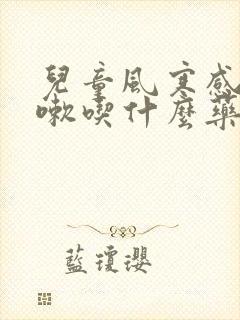 兒童風寒感
嗽喫什麼藥
藍瓊瓔